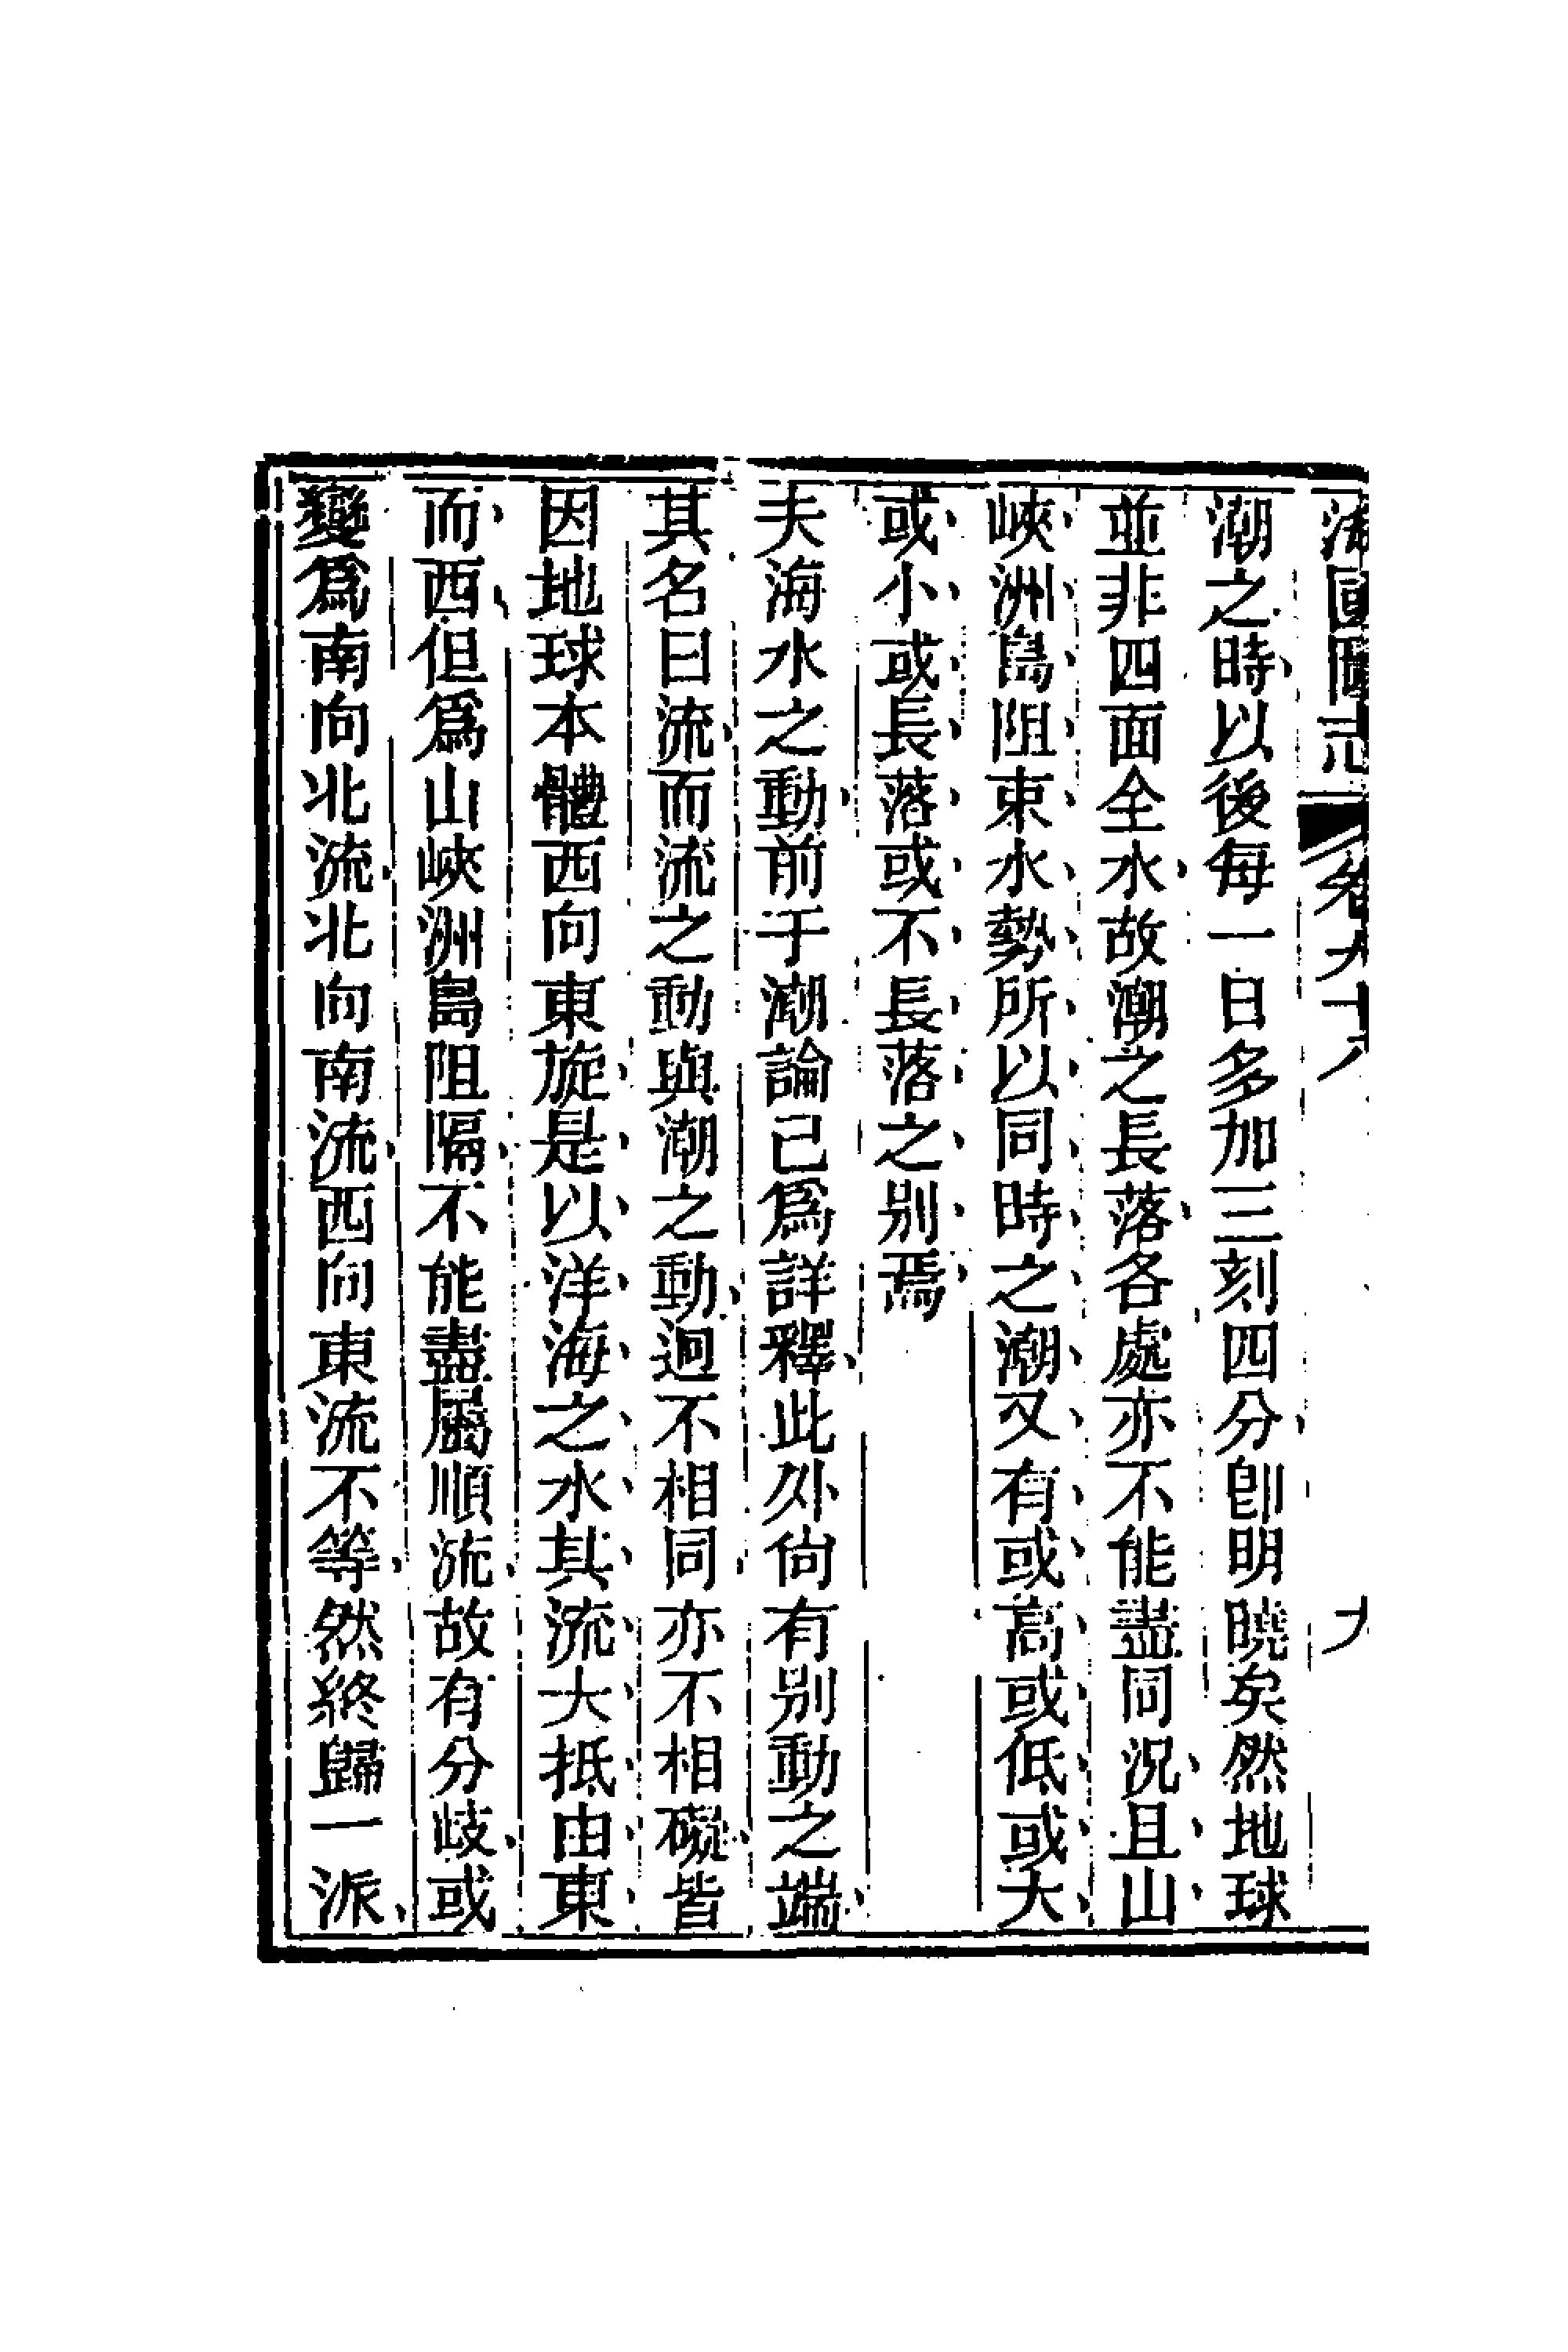 海國圖志 卷九十八 九
潮之時以後每一日多加三刻四分卽明曉矣然地球
並非四面全水故潮之長落各處亦不能盡同况且山
峽洲島阻束水勢所以同時之潮又有或高或低或大
或小或長落或不長落之別焉
夫海水之動前于潮論已爲詳釋此外尙有別動之端
其名曰流而流之動與潮之動迥不相同亦不相礙皆
因地球本體西向東旋是以洋海之水其流大抵由東
而西但爲山峽洲島阻隔不能盡屬順流故有分岐或
變爲南向北流北向南流西向東流不等然終歸一派